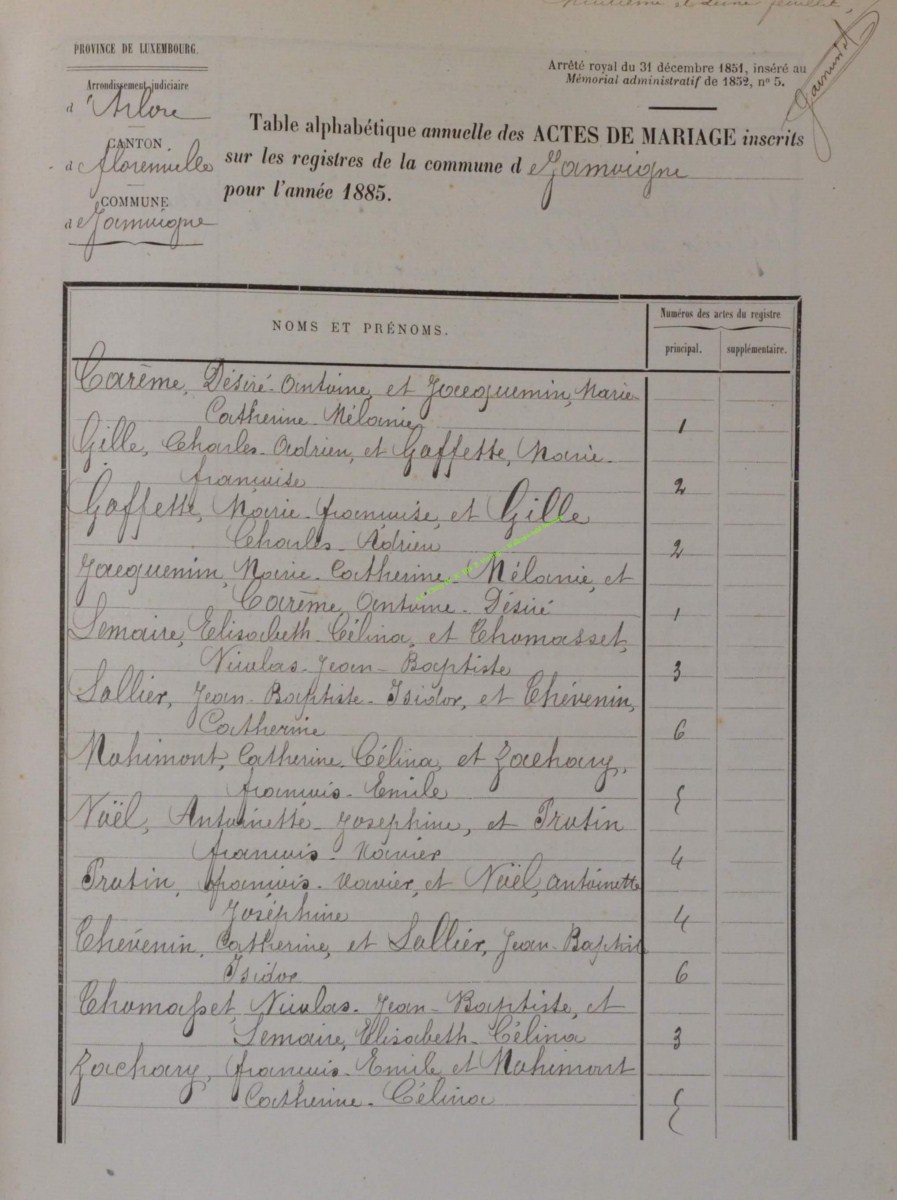 PROVINCE DE LUXEMBOURG.
Arrondissement judiciaire
d'Arlon
CANTON
d Florenville
COMMUNE
d e Jamoigne
Arrêté royal du 31 décembre 1851, inséré au
Mémorial administratif de 1852, n° 5.
Table alphabétique annuelle des ACTES DE MARIAGE inscrits
sur les registres de la commune d e Jamoigne
pour l'année 1885.
NOMS ET PRÉNOMS.
Numéros des actes du registre
principal. supplémentaire.
Carême, Désiré-Antoine, et Jacquemin, Marie-
Catherine-Mélanie, 1
Gille, Charles-Adrien, et Goffette, Marie-
françoise 2
Goffette, Marie-françoise, et Gille
Charles-Adrien 2
Jacquemin, Marie-Catherine-Mélanie, et
Carême, Antoine-Désiré 1
Lemaire, Elisabeth-Célina, et Thomasset,
Nicolas-Jean-Baptiste 3
Lallier, Jean-Baptiste-Isidor, et Thévenin,
Catherine 6
Mahimont, Catherine-Célina, et Zachary,
françois-Emile 5
Noël, Antoinette-Josephine, et Protin
françois-Xavier 4
Protin, françois-Xavier, et Noël, antoinette
Joséphine 4
Thévenin, Catherine, et Lallier, Jean-Baptis
Isidor 6
Thomasset, Nicolas-Jean-Baptiste, et
Lemaire, Elisabeth-Célina 3
Zachary, françois-Emile et Mahimont
Catherine-Célina 5